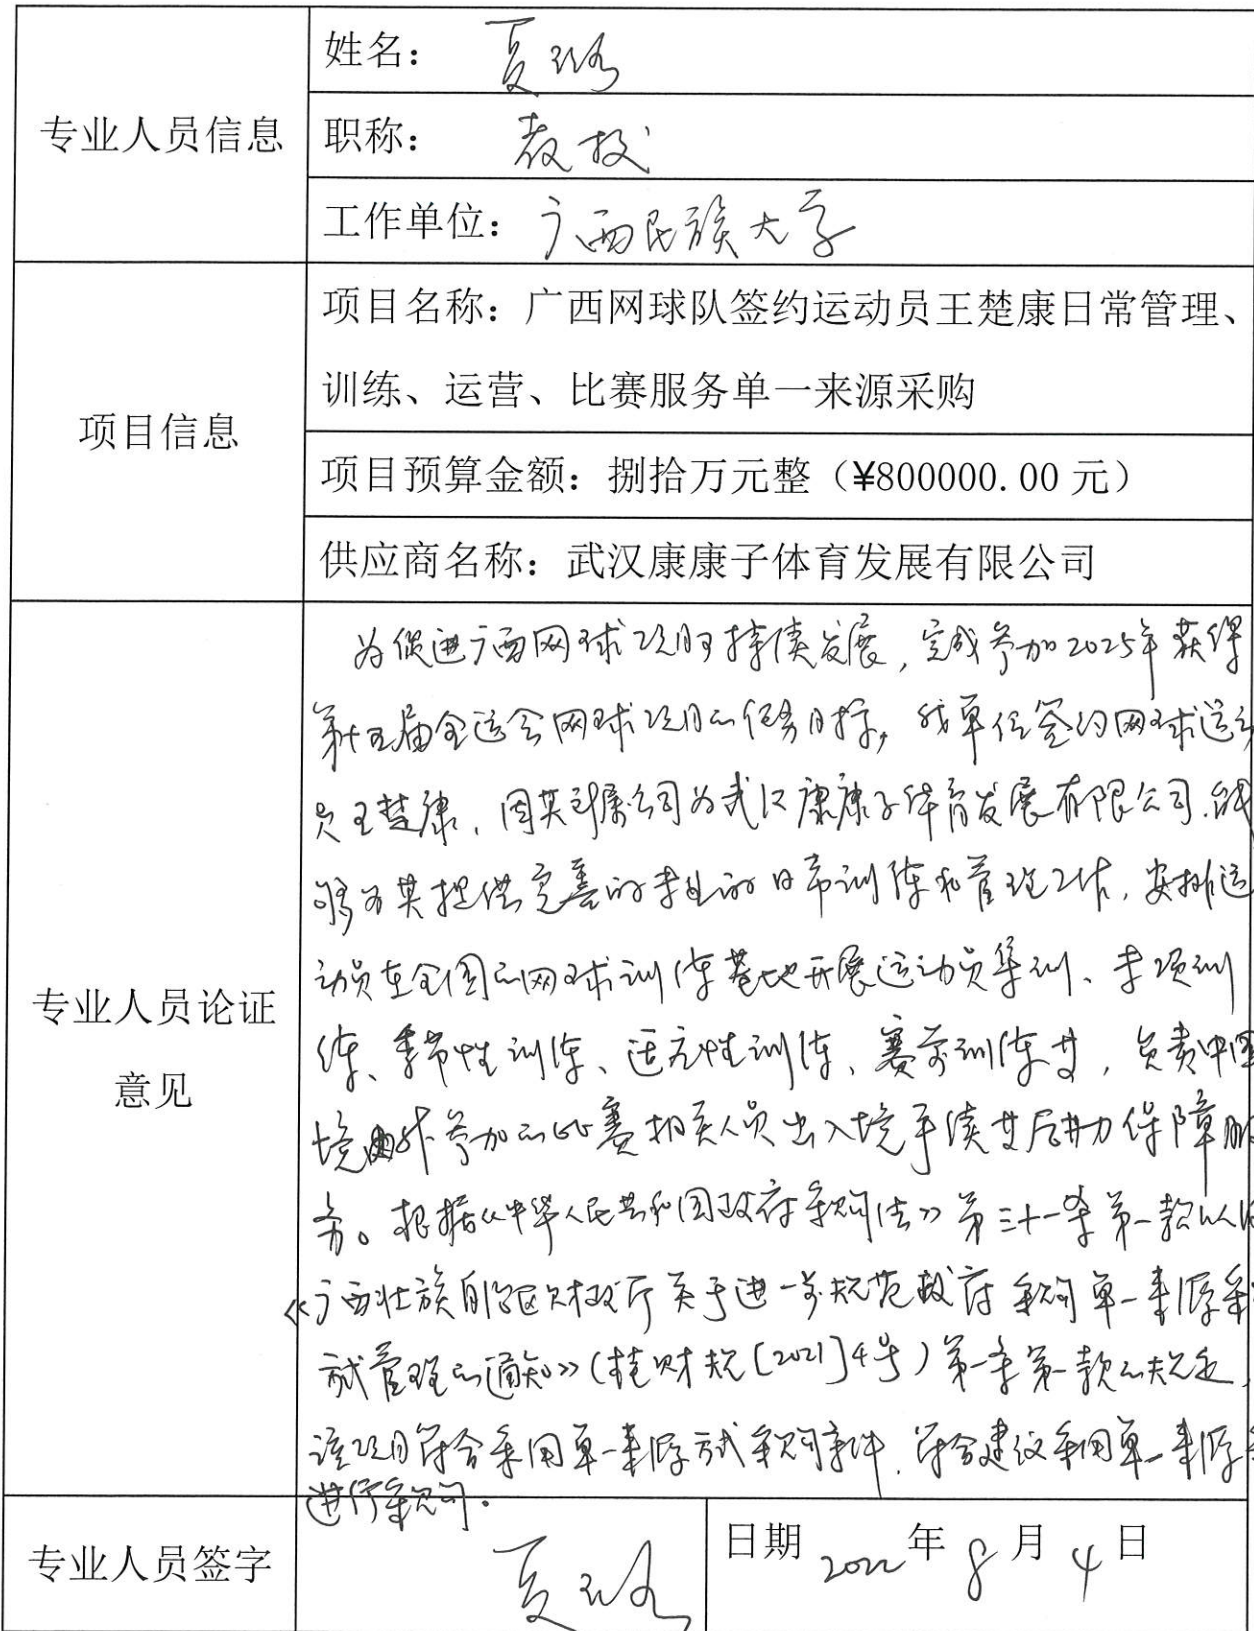 专业人员信息
姓名：夏璐
职称：教授
工作单位：广西民族大学
项目信息
项目名称：广西网球队签约运动员王楚康日常管理、
训练、运营、比赛服务单一来源采购
项目预算金额：捌拾万元整（¥800000.00 元）
供应商名称：武汉康康子体育发展有限公司
专业人员论证
意见
为促进广西网球项目可持续发展，完成参加2025年获得
第十五届全运会网球项目的任务目标，我单位签约网球运动
员王楚康，因其所属公司为武汉康康子体育发展有限公司，能
够为其提供完善的专业的日常训练和管理工作，安排运
动员在全国的网球训练基地开展运动员集训、专项训
练、季节性训练、适应性训练、赛前训练等，负责中国
境内外参加的比赛相关人员出入境手续等后勤保障服
务。根据《中华人民共和国政府采购法》第三十一条第一款以及
《广西壮族自治区财政厅关于进一步规范政府采购单一来源采购
方式管理的通知》（桂财规〔2021〕4号）第一条第一款的规定，
该项目符合采用单一来源方式采购条件，符合建议采用单一来源
进行采购。
专业人员签字
夏璐
日期 2022 年 8 月 4 日